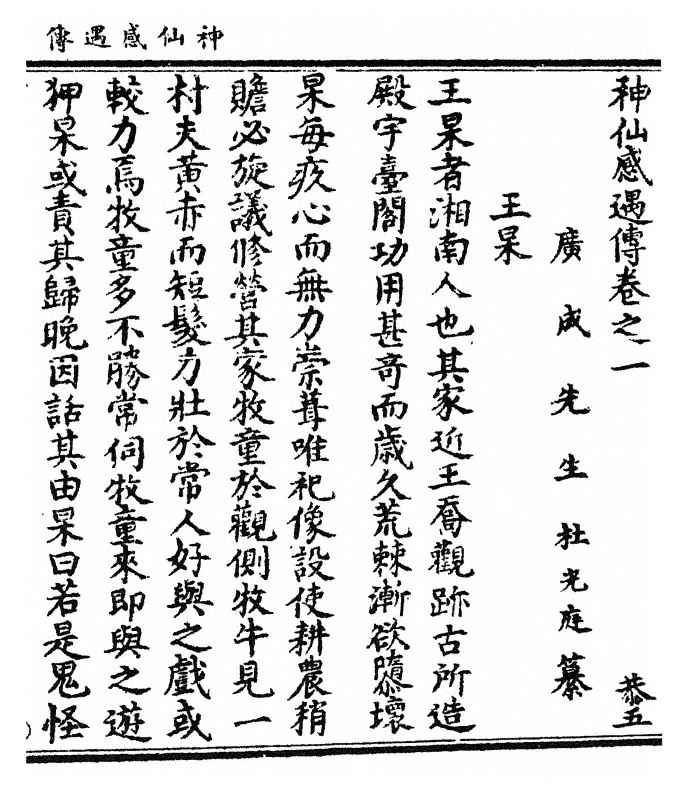 神仙感遇傳
神仙感遇傳卷之一
恭五
廣成先生杜光庭纂
王杲
王杲者湘南人也其家近王喬觀跡古所造
殿宇臺閣功用甚奇而歳久荒棘漸欲隳壞
杲每疚心而無力崇葺唯祀像設使耕農稍
贍必旋議修營其家牧童於觀側牧牛見一
村夫黃赤而短髮力壯於常人好與之戲或
較力焉牧童多不勝常伺牧童來即與之遊
狎杲或責其歸晚因話其由杲曰若是鬼怪